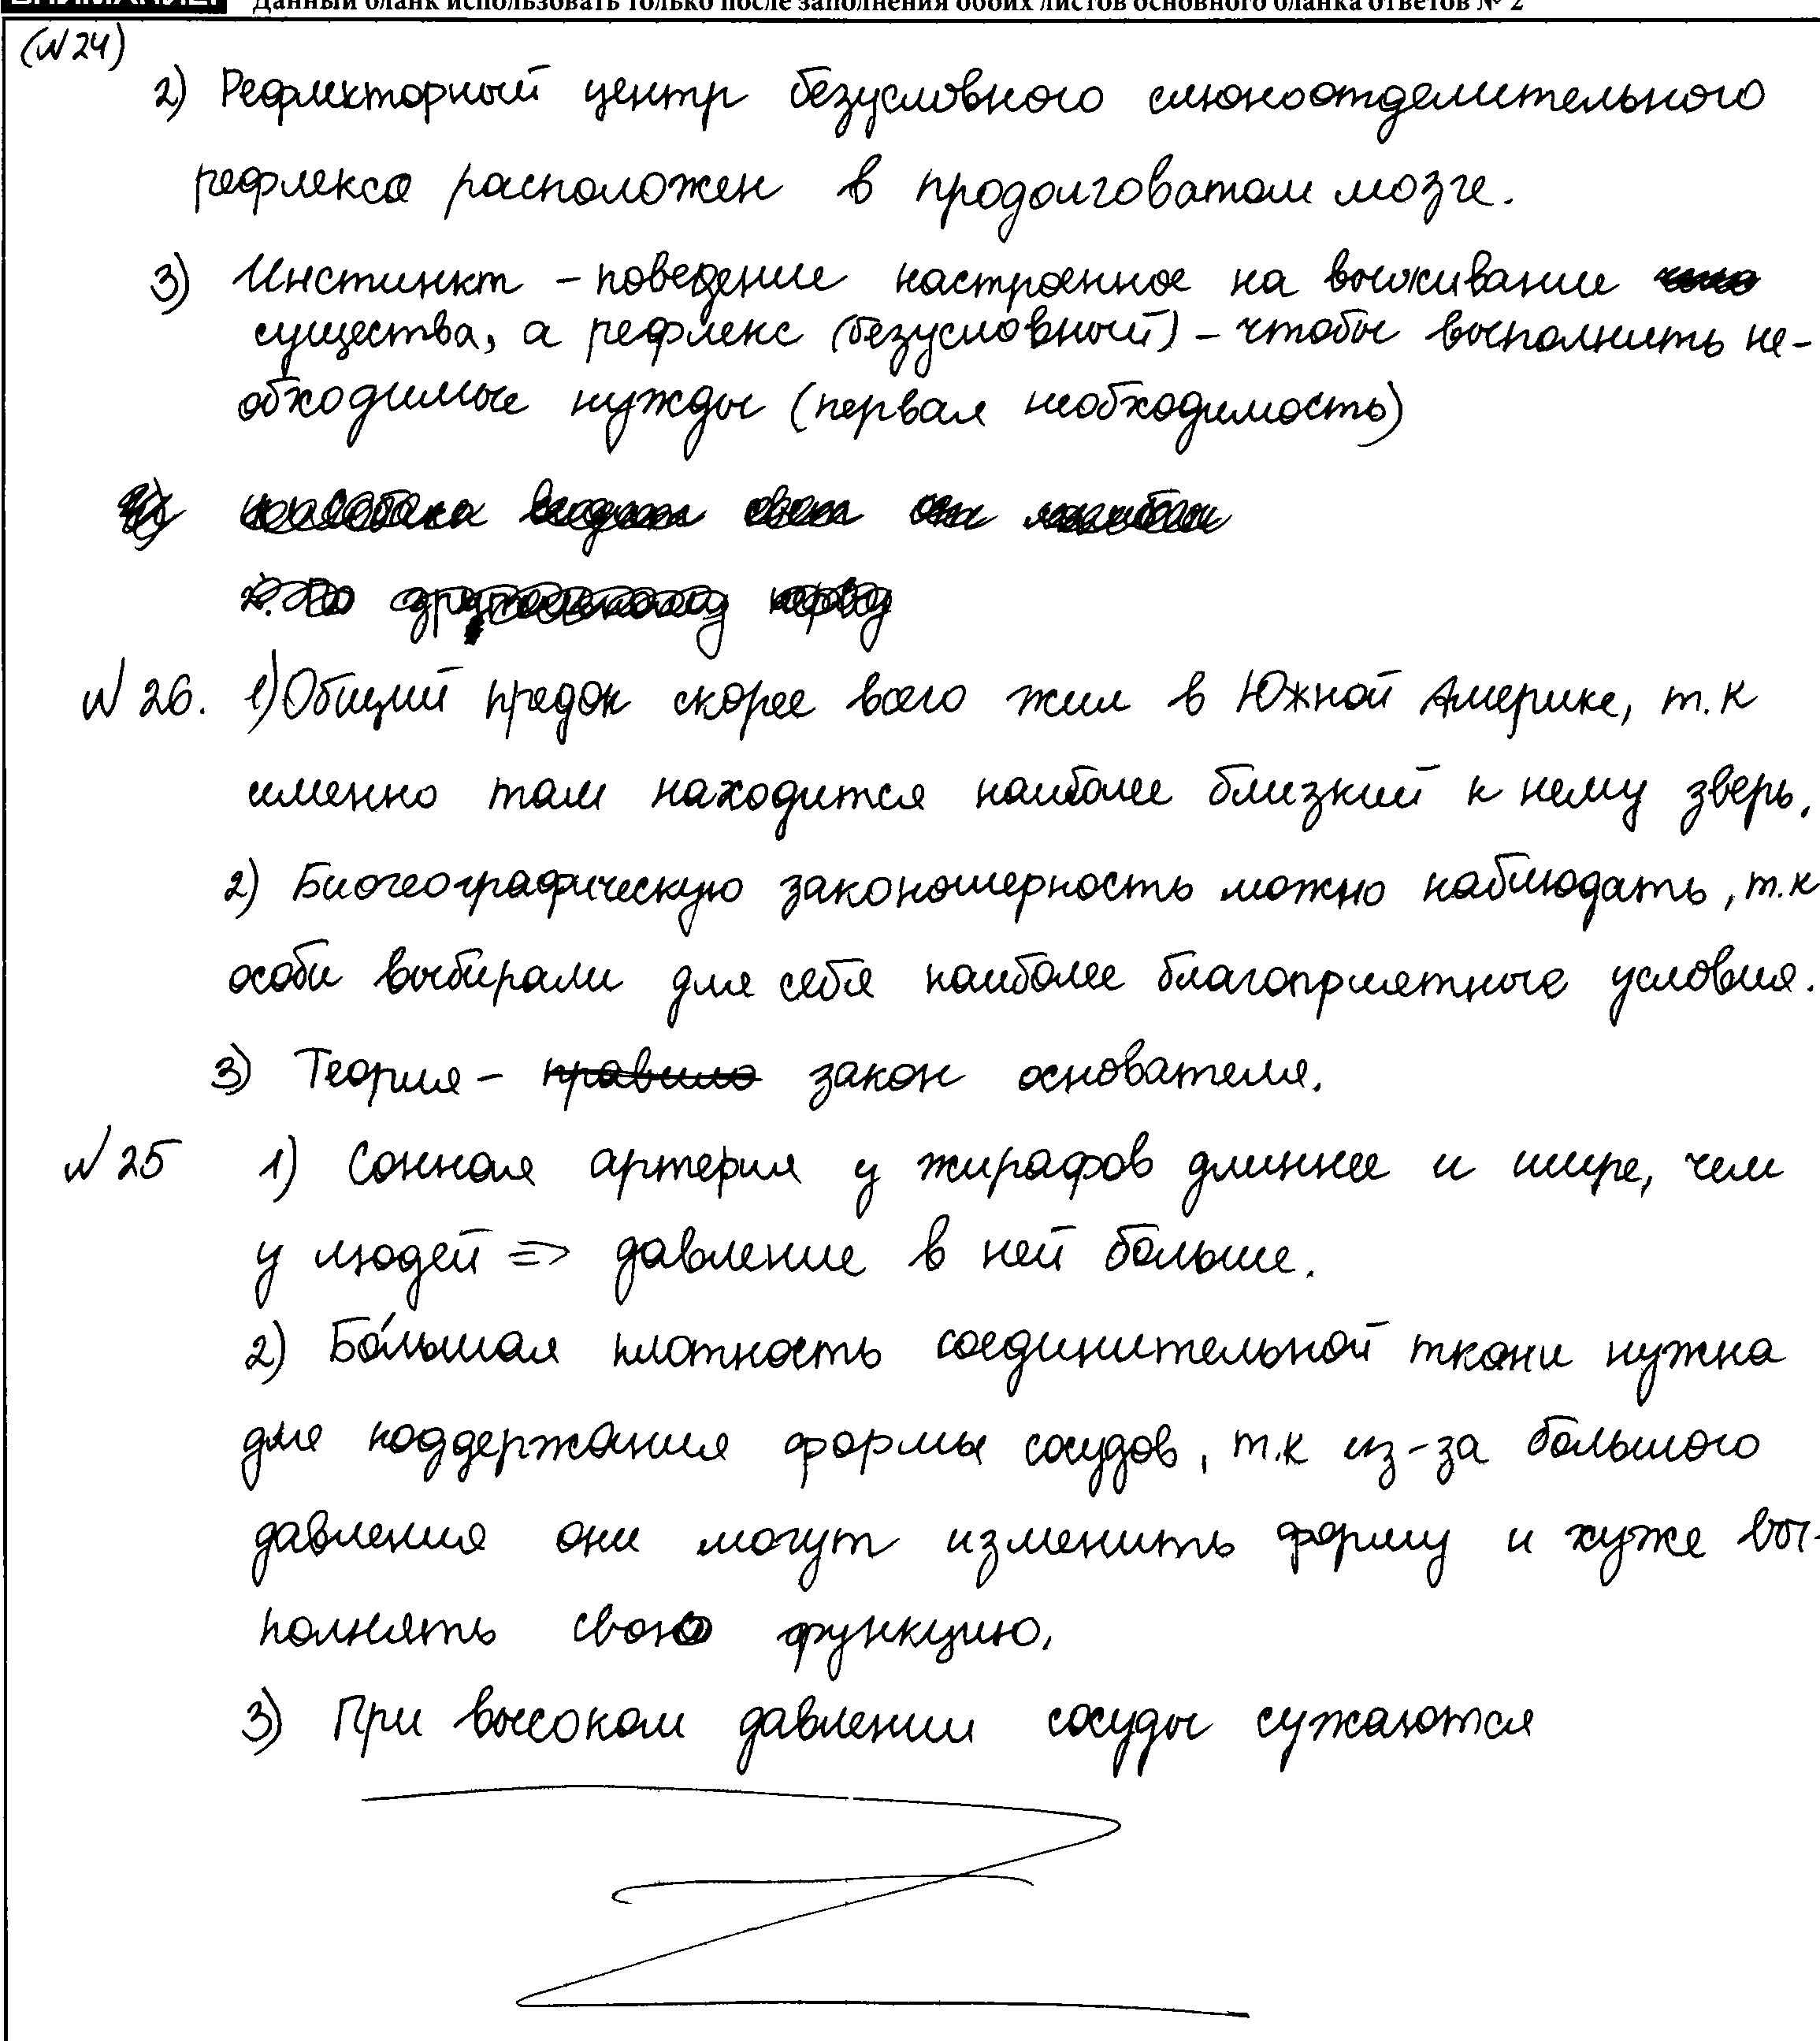 ВНИМАНИЕ! Данный бланк использовать только после заполнения обоих листов основного бланка ответов № 2
(№24)
2) Рефлекторный центр безусловного слюноотделительного
рефлекса расположен в продолговатом мозге.
3) Инстинкт - поведение настроенное на выживание
существа, а рефлекс (безусловный) - чтобы выполнить не-
обходимые нужды (первая необходимость)
№ 26. 1) Общий предок скорее всего жил в Южной Америке, т.к
именно там находится наиболее близкий к нему зверь.
2) Биогеографическую закономерность можно наблюдать, т.к
особи выбирали для себя наиболее благоприятные условия.
3) Теория - правило закон основателя.
№ 25 1) Сонная артерия у жирафов длиннее и шире, чем
у людей => давление в ней больше.
2) Бо́льшая плотность соединительной ткани нужна
для поддержания формы сосудов, т.к из-за большого
давления они могут изменить форму и хуже вы-
полнять свою функцию.
3) При высоком давлении сосуды сужаются